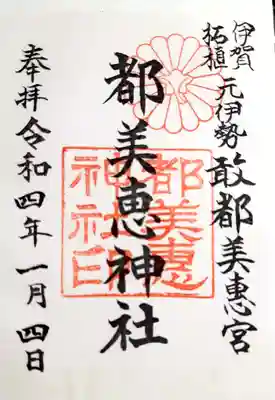 伊賀
拓植
元伊勢敢都美恵宮
都美恵神社
都美恵
神社印
奉拝令和四年一月四日